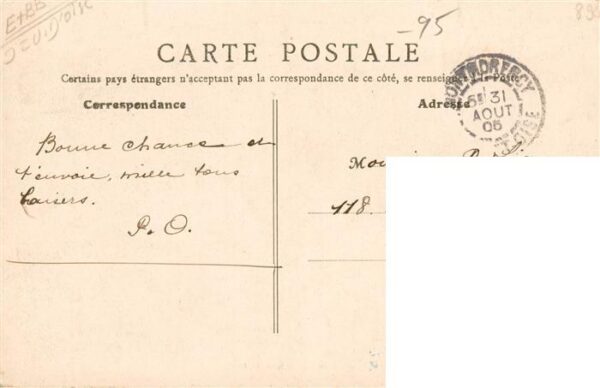 -95
CARTE POSTALE
Certains pays étrangers n'acceptant pas la correspondance de ce côté, se renseigner à la Poste
Correspondance
Adresse
MONTMORENCY
31
AOUT
05
ET-OISE
Bonne chance et
t'envoie, mille bons
baisers.
P. O.
118.